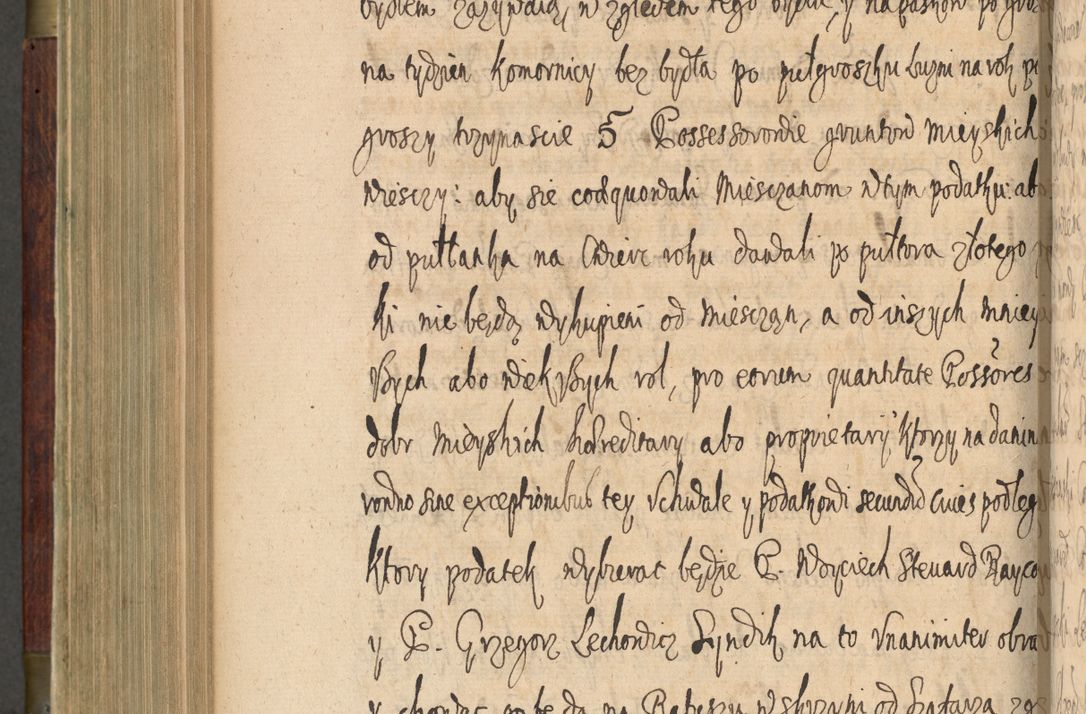 bydłem zazywaią, wzgledem tego bydłe, y na
na tydzien Komornicy bez bydła po pułgroszku Luzni na rok
groszy trzynascie 5 Possessorowie gruntow mieyskich
wiesczy: aby sie coæquowali Miesczanom w tym podatku: abo
od pułłanka na Cwierc roku dawali po pułtora złotego
ki nie będą wykupieni od Miesczan, a od inszych mniey
szych abo wiekszych rol, pro eorum quantitate Possores
dobr Mieyskich hæreditary abo proprietary Ktorzy na danin
rowno sine exceptionibus tey Uchwale y podatkowi secundum podleg
Ktory podatek wybierac będzie P. Woyciech Steward Rayca
y P. Grzegorz Lechowicz Syndik na to Unanimiter obra
y chowac go będą na Ratuszu w skrzyni od